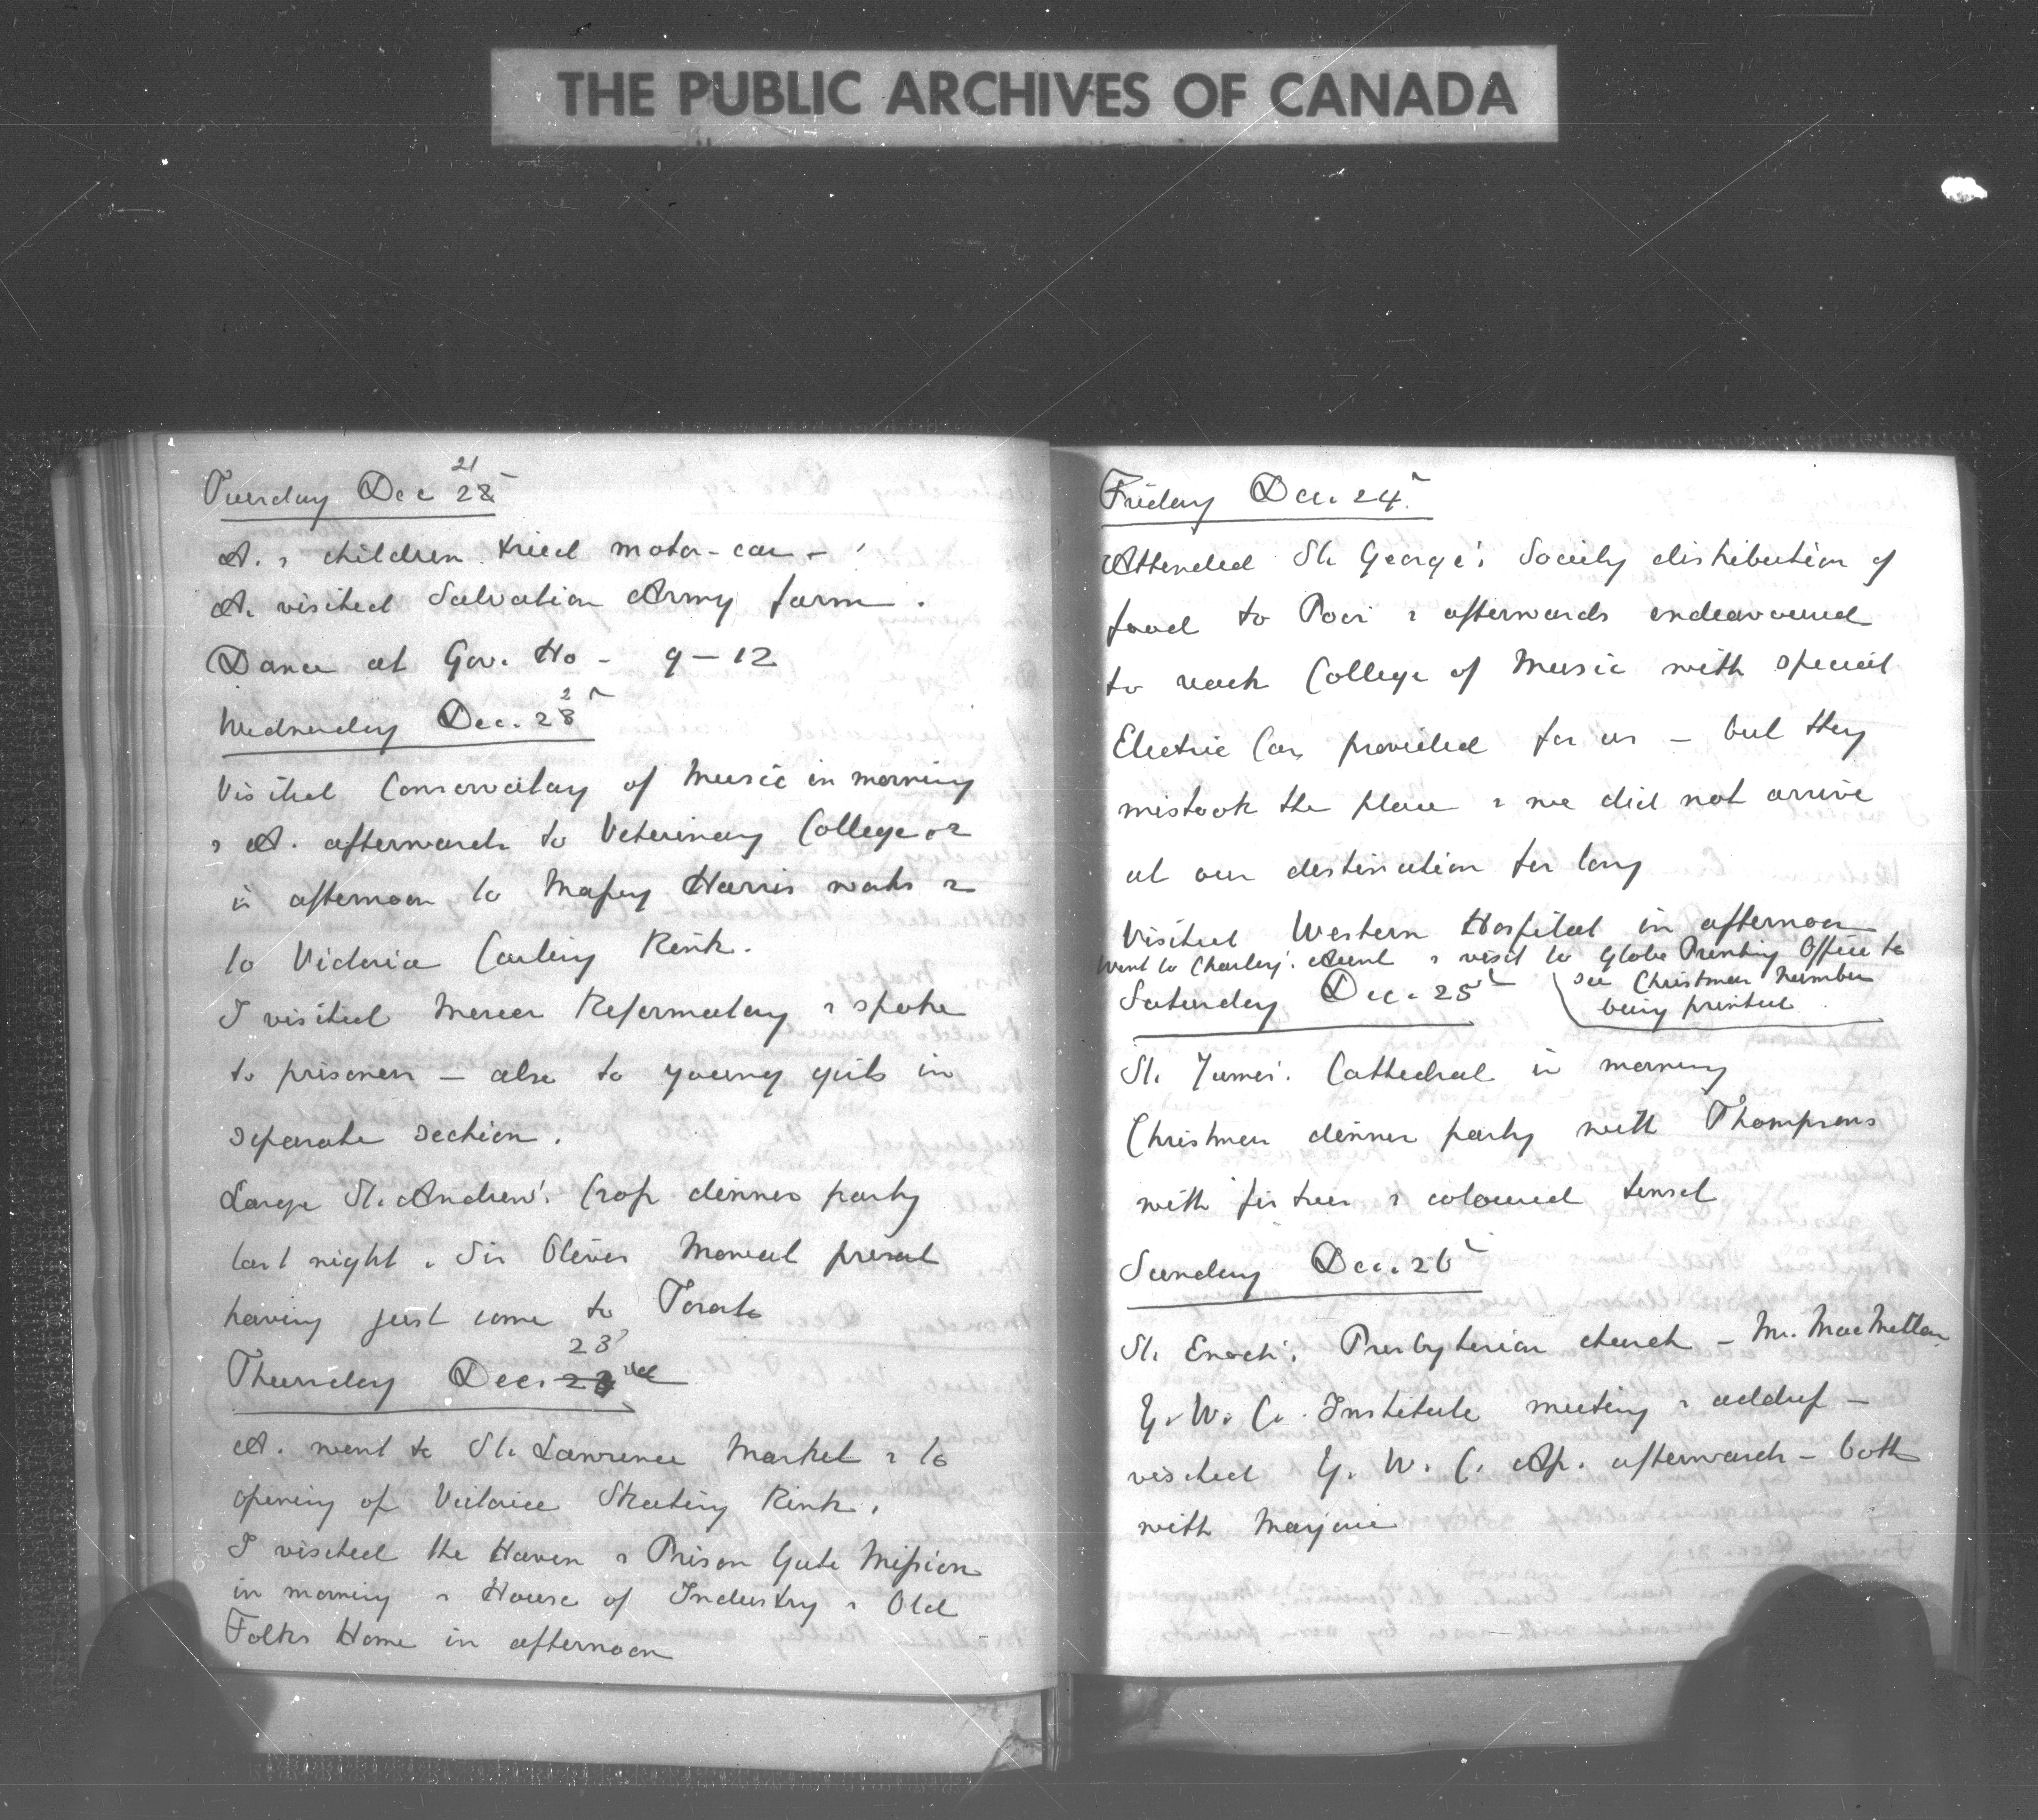 THE PUBLIC ARCHIVES OF CANADA
21
Tuesday Dec 22
A. & children tried motor-car -
A. visited Salvation Army farm.
Dance at Gov. Ho - 9-12
2
Wednesday Dec. 23
Visited Conservatory of Music in morning
& A. afterwards to Veterinary College &
in afternoon to Massey Harris works &
to Victoria Curling Rink.
I visited Mercer Reformatory & spoke
to prisoners - also to young girls in
separate section.
Large St. Andrew's Crop dinner party
last night. Sir Oliver Mowat present
having just come to Toronto
23
Thursday Dec.
A. went to St. Lawrence Market & to
opening of Victoria Skating Rink.
I visited the Haven & Prison Gate Mission
in morning & House of Industry & Old
Folks Home in afternoon
Friday Dec. 24
Attended St. George's Society distribution of
food to Poor & afterwards endeavoured
to reach College of Music with special
Electric Car provided for us - but they
mistook the place & we did not arrive
at our destination for long
Visited Western Hospital in afternoon
Went to Charley's Aunt & visit to Globe Printing Office to
see Christmas number
being printed
Saturday Dec. 25
St. James' Cathedral in morning
Christmas dinner party with Thompsons
with fir trees & coloured tinsel
Sunday Dec. 26
St. Enoch's Presbyterian church - Mr. MacMillan
Y. W. C. Institute meeting & address -
visited Y. W. C. Ap. afterwards - both
with Marjorie